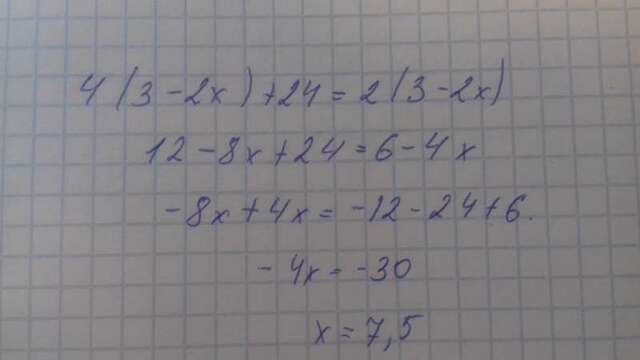 4(3-2x)+24=2(3-2x)
12-8x+24=6-4x
-8x+4x=-12-24+6.
-4x=-30
x=7,5